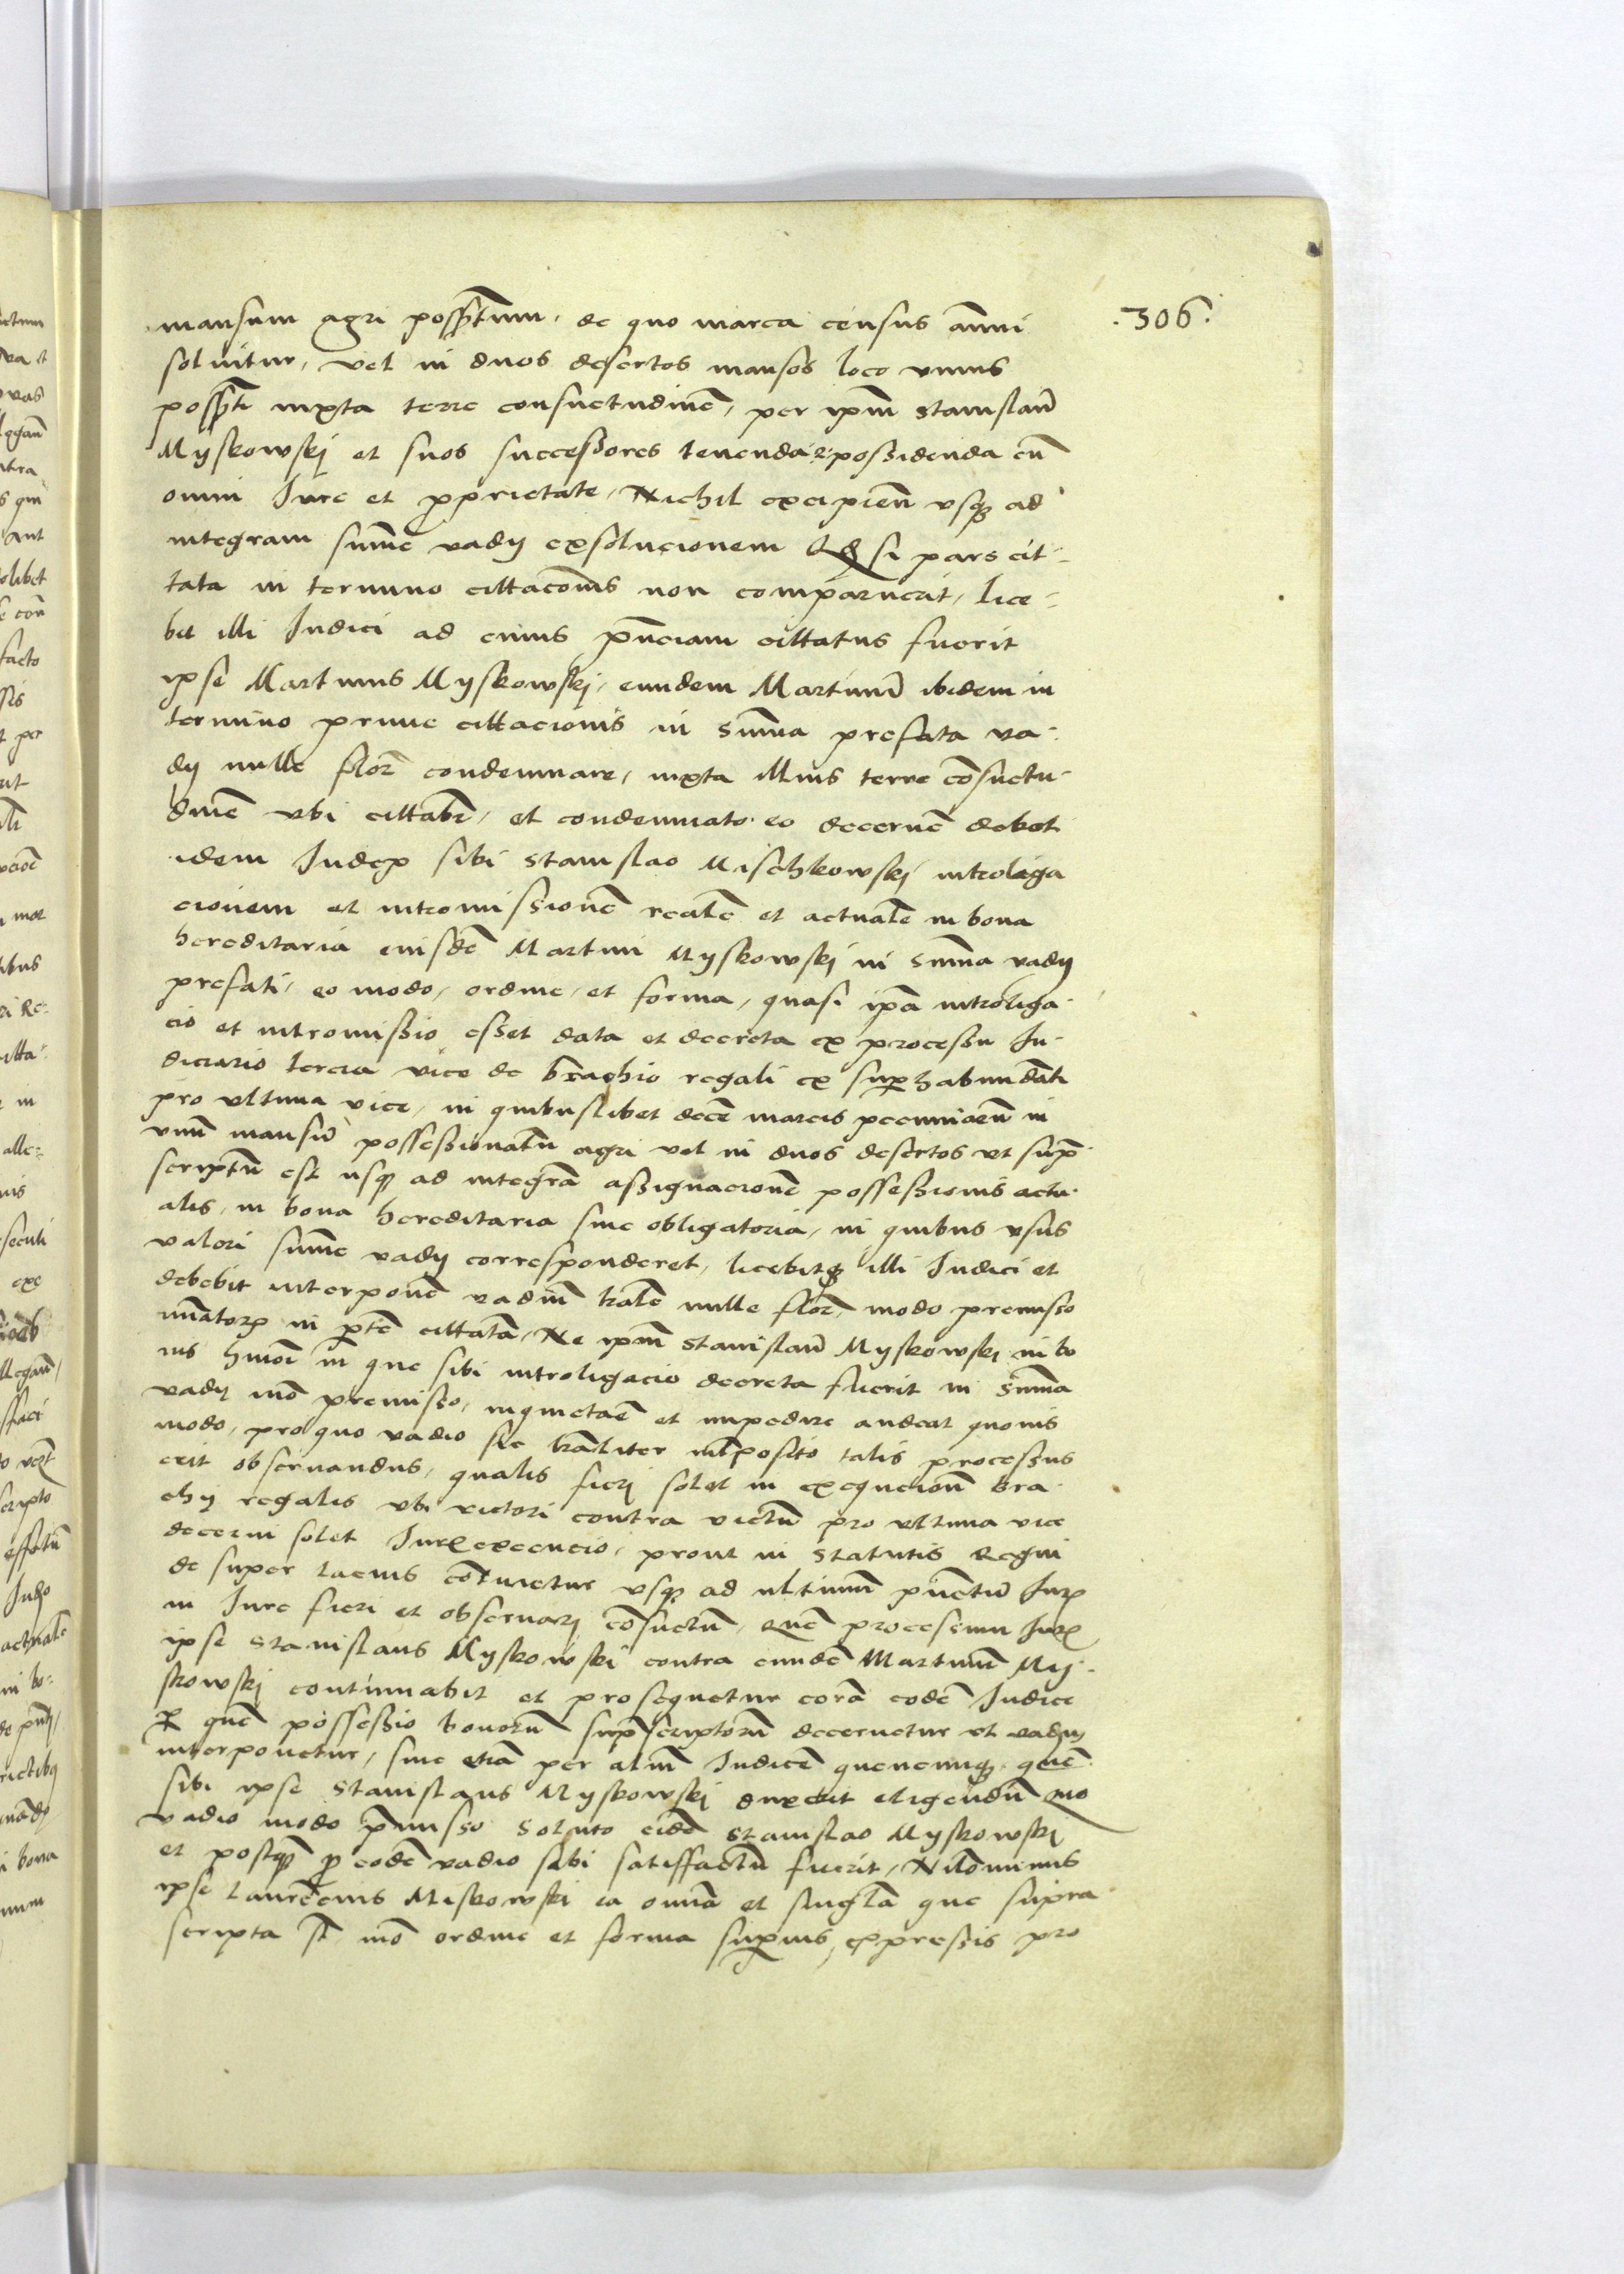 .306.
mansum agri posspt̃um, de quo marca census anni
soluitur, vel in duos desertos mansos loco vnius
posspti iuxta terre consuetudinẽ, per ipm̃ Stanislaũ
Myskowskj et suos successores tenenda possidenda cũ
omni Iure et p̱prietate, Nichil excipieñ vsqȝ ad
integram sum̃e vadij exsolucionem Qd̃ si pars cit-
tata in termino cittacõnis non comparuerit, lice-
bit illi Iudici ad cuius pñciam cittatus fuerit
ipse Martinus Myskowskj, eundem Martinũ ibidem in
termino prime cittacionis in Sum̃a prefata va-
dij mille flor̃ condemnare, iuxta illius terre cõsuetu-
dinẽ vbi cittabr̃, et condemnato eo decernẽ debet
idem Iudex sibi Stanislao Mischkowskj introliga
cionem et intromissionẽ realẽ et actualẽ in bona
hereditaria eiusdẽ Martini Myskowskj in Sum̃a vadij
prefati, eo modo, ordine, et forma, quasi ipã introliga-
cio et intromissio esset data et decreta ex processu Iu-
diciario tercia vice de brachio regali ex superhabundãti
pro vltima vice, in quibuslibet decẽ marcis pecuniaeũ in
vnũ mansũ possessionatũ agri vel in duos desertos vt sup̃
scriptũ est usqȝ ad integrã assignacionẽ possessionis actu-
alis, in bona hereditaria siue obligatoria, in quibus vsus
valori sum̃e vadij corresponderet, licebitqȝ illi Iudici et
debebit interponẽ vadiũ talẽ mille flor̃, modo premisso
in p̱tẽ cittatã, Ne ipm̃ Stanislaũ Myskowskj in bo
nis hmõi in que sibi introligacio decreta fuerit in Sum̃a
vadij mõ premisso, inquietaẽ et impedire audeat quouis
modo, pro quo vadio sic trãliter intp̃osito talis processus
erit obseruandus, qualis fieri solet in exequcionũ bra-
chij regalis vbi victori contra victũ pro vltima vice
decerni solet Iure execucio, prout in Statutis Regni
de super lacius cõtinetur vsqȝ ad ultimũ puñctũ Iur̃
in Iure fieri et obseruarj cõsuetũ, quẽ processum Iur̃
ipse Stanislaus Myskowski contra eundẽ Martinũ My-
skowskj continuabit et prosequetur corã eodẽ Iudice
p̱ quẽ possessio bonorũ sup̃scriptorũ decernetur vt vadiũ
interponetur, siue etiã per aliũ Iudicẽ quencunqȝ quẽ
sibi ipse Stanislaus Myskowskj duxerit eligendũ quo
vadio modo p̃misso soluto eidẽ Stanislao Myskowskj
et postqȝ p̱ eodẽ vadio sibi satisffactũ fuerit, Nilominus
ipse Laurẽcius Miskowski ea omĩa et singl̃a que supra
scripta st̃ mõ ordine et forma superius expressis pro